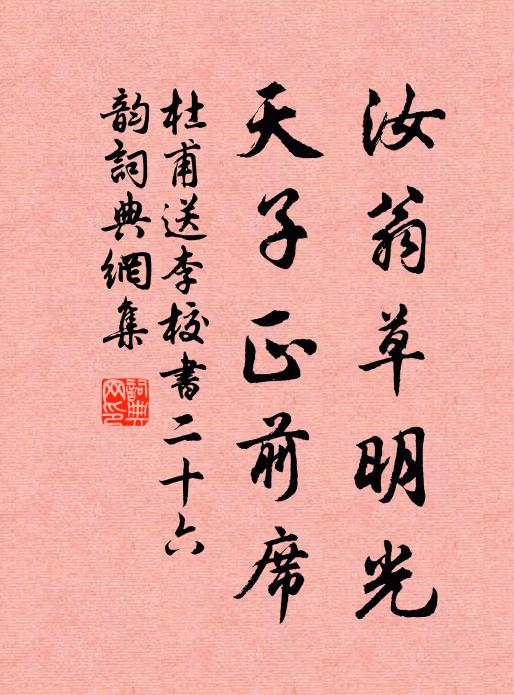 汝翁草明光
天子正前席
杜甫送李校書二十六
韵詞典網集
詞典
网印